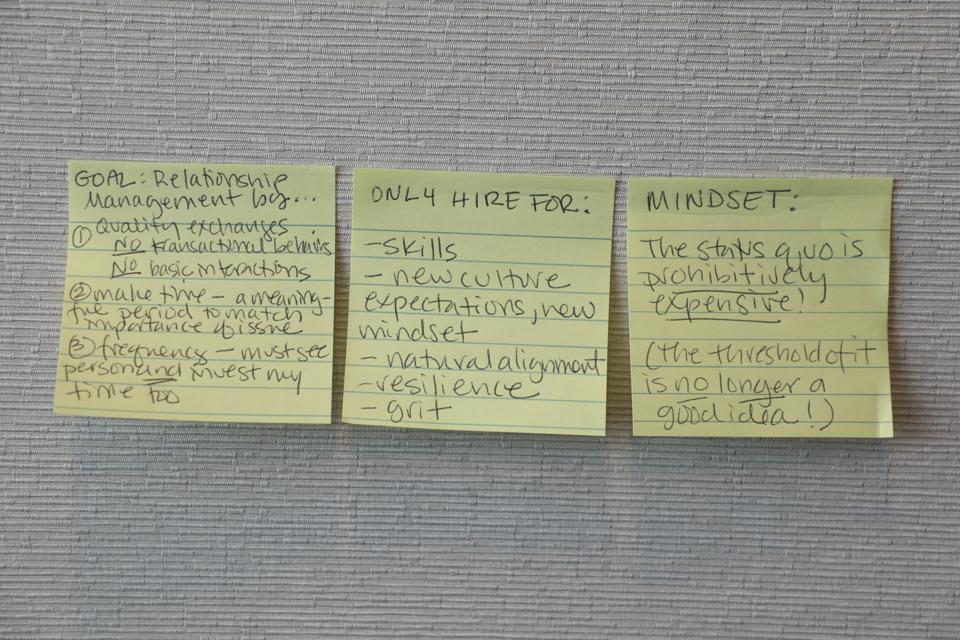 GOAL: Relationship
Management by...
① Quality exchanges
NO transactional behaviors
NO basic interactions
② make time – a meaning-
ful period to match
importance of issue
③ frequency – must see
person and invest my
time too
ONLY HIRE FOR:
– skills
– new culture
expectations, new
mindset
– natural alignment
– resilience
– grit
MINDSET:
The status quo is
prohibitively
expensive!
(the threshold of it
is no longer a
good idea!)